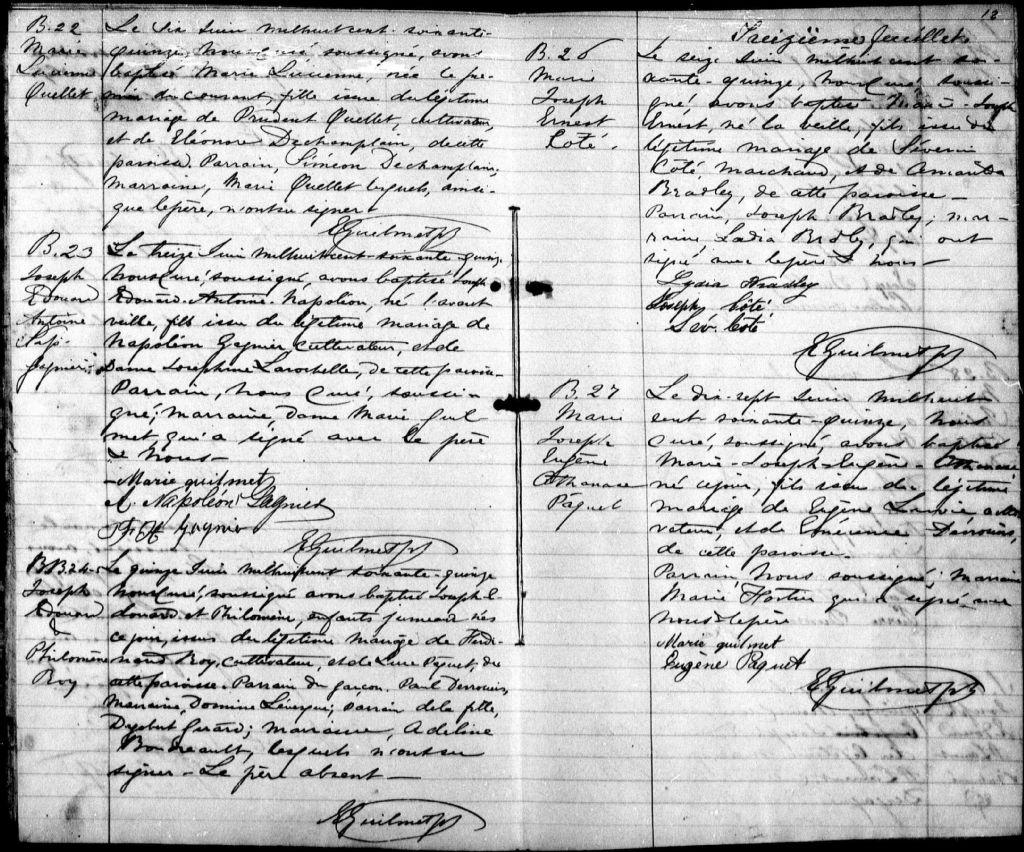 B.22
Marie
Lucienne
Ouellet
Le dix Juin mil huit cent soixante-
quinze, nous curé soussigné, avons
baptisé Marie Lucienne, née le pre-
mier du courant, fille issue du légitime
mariage de Prudent Ouellet, cultivateur,
et de Eléonore Dechamplain, de cette
paroisse. Parrain, Siméon Dechamplain;
marraine, Marie Ouellet lesquels, ainsi-
que le père, n'ont su signer-
E Guilmet ptr
B.23
Joseph
Edouard
Antoine
Nap.
Gagnier
Le treize Juin mil huit cent-soixante-quinze
nous curé, soussigné, avons baptisé Joseph
Edouard-Antoine Napoléon, né l'avant
veille, fils issu du légitime mariage de
Napoléon Gagnier cultivateur, et de
Dame Josephine Larochelle, de cette paroisse
Parrain, Nous curé, soussi-
gné; marraine, Dame Marie Guil
met, qui a signé avec le père
& nous-
Marie guilmet
Napoléon Gagnier
Gagnier
E Guilmet ptr
BB24-5
Joseph
Edouard
&
Philomène
Roy
Le quinze Juin mil huit cent soixante-quinze
nous curé, soussigné avons baptisé Joseph E-
douard et Philomène, enfants jumeaux nés
ce jour, issus du légitime mariage de Ferdi-
nand Roy, cultivateur, et de Luce Paquet, de
cette paroisse. Parrain du garçon, Paul Derouin,
marraine, Levesque; parrain de la fille,
Girard; marraine, Adeline
Boudreault, lesquels n'ont su
signer - Le père absent-
E Guilmet ptr
13
Treizième feuillet
B.26
Marie
Joseph
Ernest
Coté.
Le seize Juin mil huit cent soi-
xante-quinze, nous curé, soussi-
gné avons baptisé Marie-Joseph
Ernest, né la veille, fils issu du
légitime mariage de Séverin
Côté, marchand, et de Amanda
Bradley, de cette paroisse-
Parrain, Joseph Bradley; mar-
raine, Lydia Bradley, qui ont
signé avec le père & nous-
Lydia Bradley
Joseph Côté
Sev. Coté
E Guilmet ptr
B.27
Marie
Joseph
Eugène
Athanase
Pâquet
Le dix-sept Juin mil huit
cent soixante-quinze, nous
curé, soussigné, avons baptisé
Marie-Joseph-Eugène-Athanase
né ce jour, fils issu du légitime
mariage de Eugène culti
vateur, et de Dérouin,
de cette paroisse.
Parrain, nous soussigné; marraine
Marie Fortier qui a signé avec
nous & le père
Marie guilmet
Eugène Paquet
E Guilmet ptr